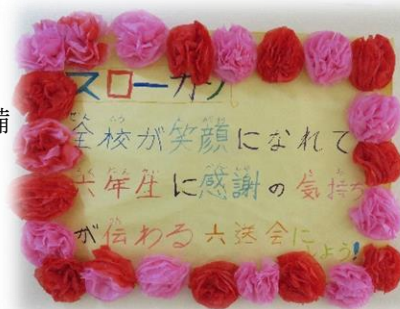 備
スローガン
全校が笑顔になれて
六年生に感謝の気持ち
が伝わる六送会に
しよう!